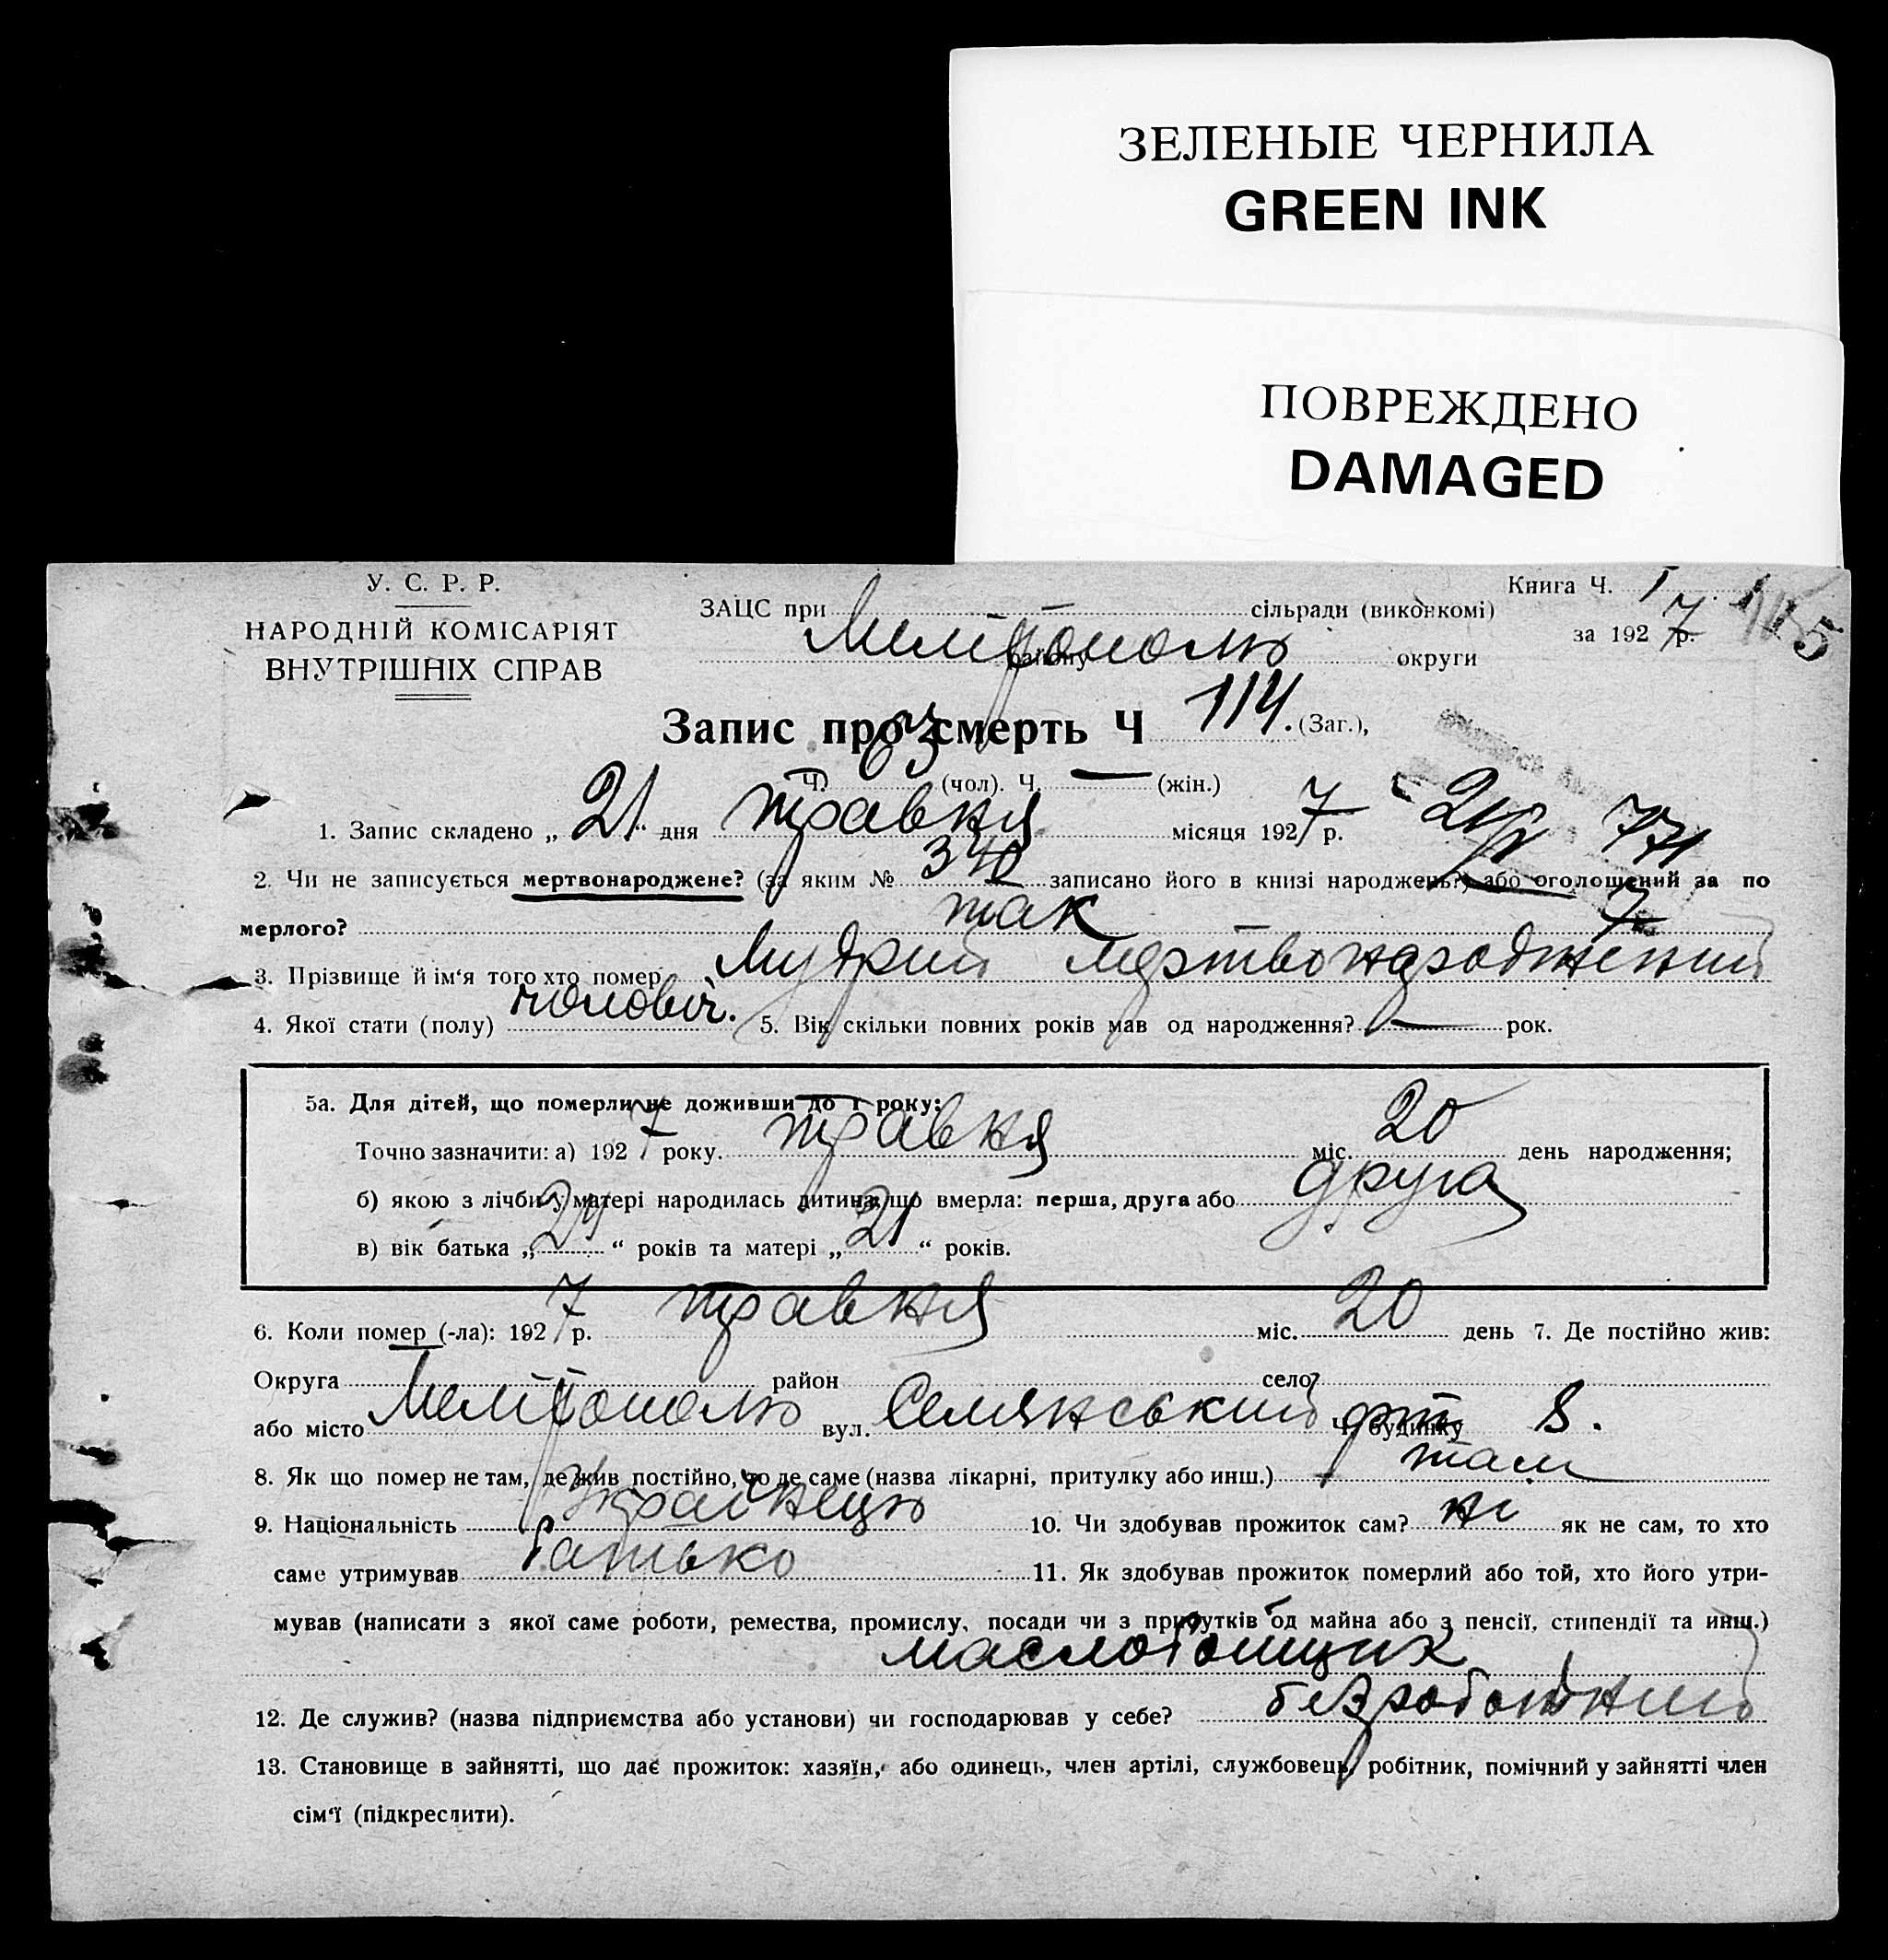 ЗЕЛЕНЫЕ ЧЕРНИЛА
GREEN INK
ПОВРЕЖДЕНО
DAMAGED
У. С. Р. Р.
НАРОДНІЙ КОМІСАРІЯТ
ВНУТРІШНІХ СПРАВ
Книга Ч. I
за 1927 р.
115
ЗАЦС при сільради (виконкомі)
Мелітополь району округи
Запис про смерть Ч 114. (Заг.),
Ч. 63 (чол). Ч. — (жін.)
1. Запис складено „ 21 “ дня травня місяця 1927 р.
771
2. Чи не записується мертвонароджене? (за яким № 340 записано його в книзі народжень?) або оголошений за по
мерлого? так
3. Прізвище й ім‘я того хто помер Мудрий мертвонароджений
4. Якої стати (полу) чоловіч. 5. Вік скільки повних років мав од народження? — рок.
5а. Для дітей, що померли не доживши до 1 року:
Точно зазначити: а) 1927 року. травня міс. 20 день народження;
б) якою з лічби у матері народилась дитина, що вмерла: перша, друга або друга
в) вік батька „ 24 “ років та матері „ 21 “ років.
6. Коли помер (-ла): 1927 р. травня міс. 20 день 7. Де постійно жив:
Округа район село
або місто Мелітополь вул. Ч. будинку 8.
8. Як що помер не там, де жив постійно, то де саме (назва лікарні, притулку або инш.) там
9. Національність Українець 10. Чи здобував прожиток сам? ні як не сам, то хто
саме утримував батько 11. Як здобував прожиток померлий або той, хто його утри-
мував (написати з якої саме роботи, ремества, промислу, посади чи з прибутків од майна або з пенсії, стипендії та инш.)
маслобойщик
12. Де служив? (назва підприємства або установи) чи господарював у себе? безроботний
13. Становище в зайнятті, що дає прожиток: хазяїн, або одинець, член артілі, службовець, робітник, помічний у зайнятті член
сім‘ї (підкреслити).